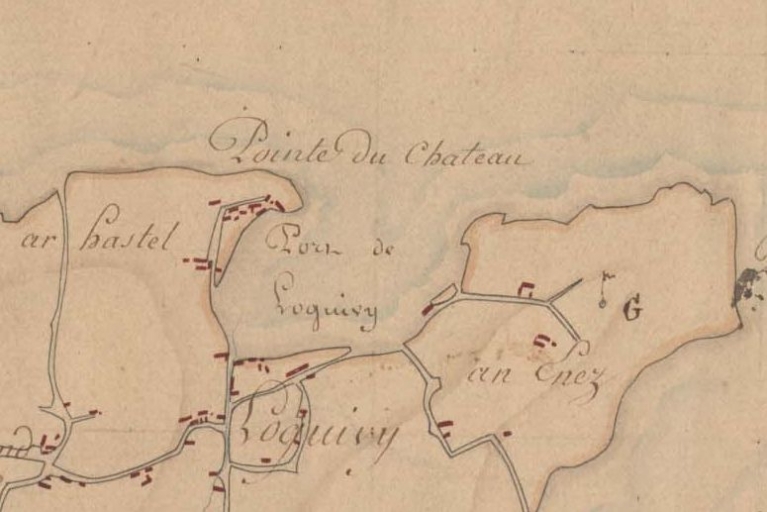 Pointe du Chateau
ar hastel
Porz de
Loguivy
G
an Enez
Loguivy